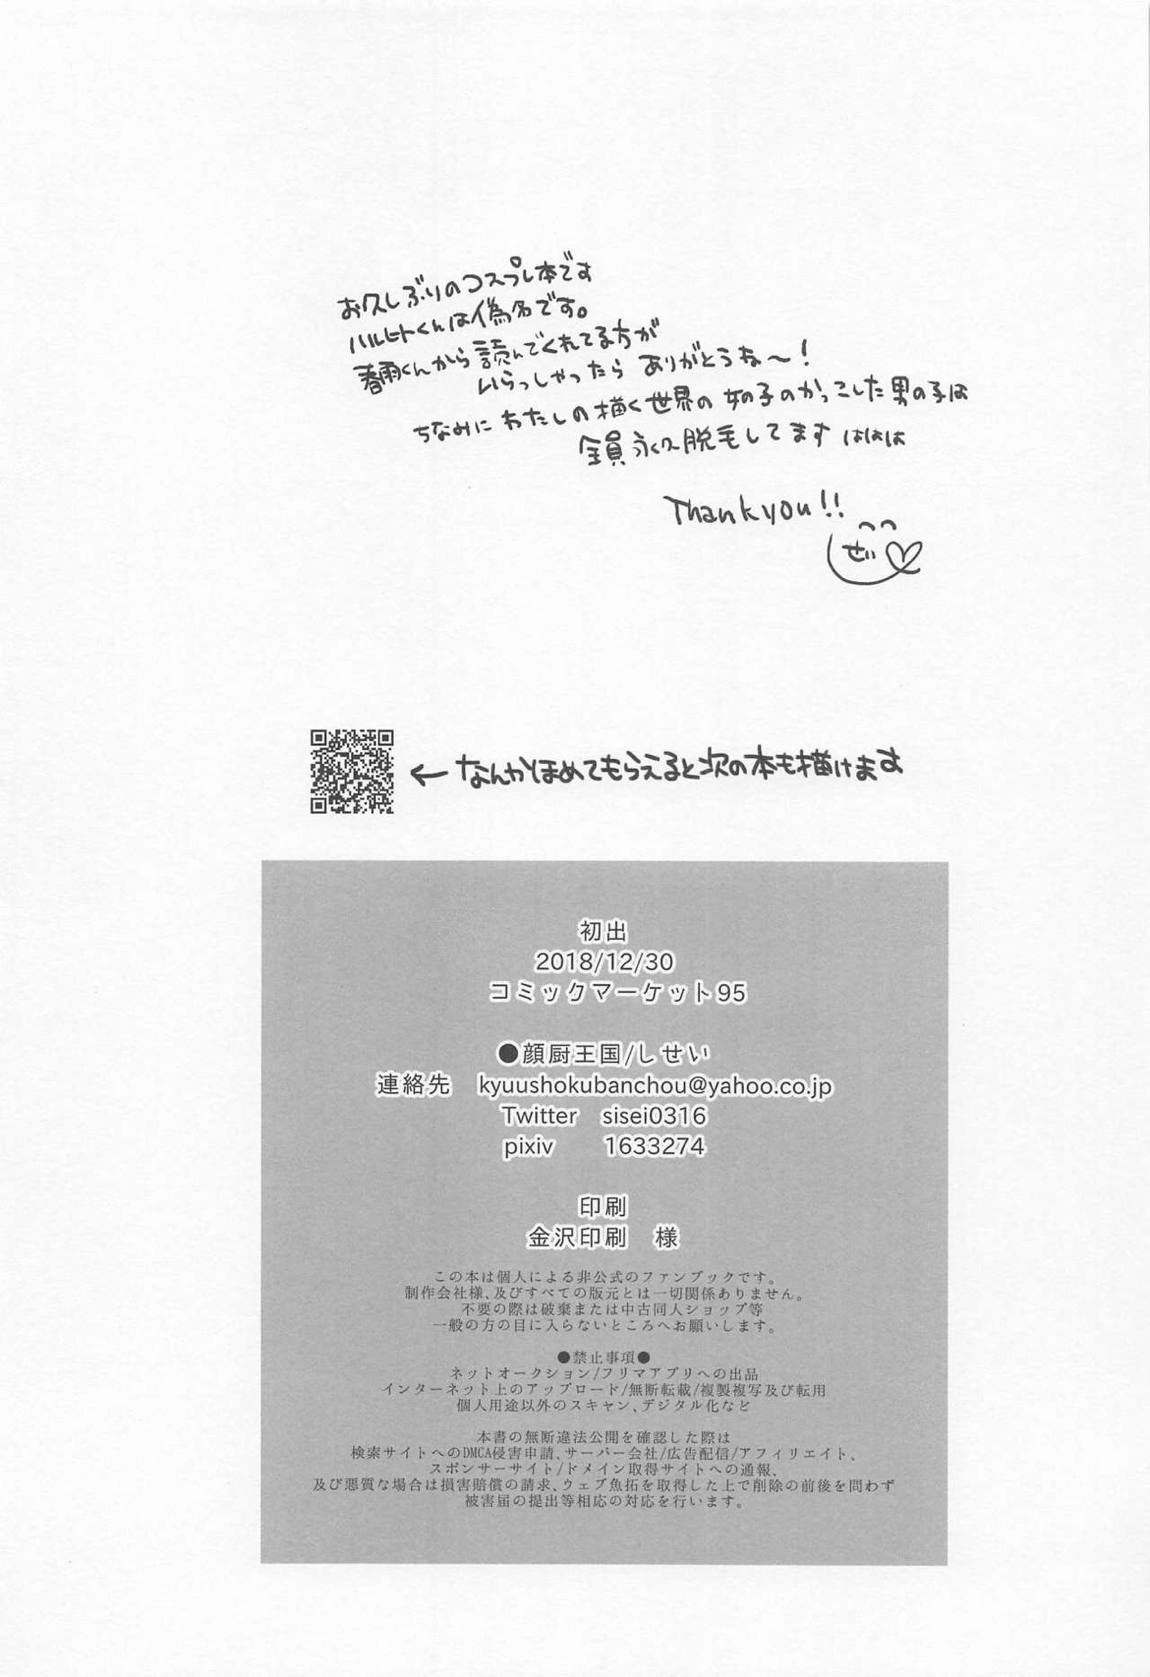 お久しぶりのコスプレ本です
ハルヒトくんは偽名です。
春雨くんから読んでくれてる方が
いらっしゃったら ありがとうね〜!
ちなみに わたしの描く世界の 女の子のかっこした男の子は
全員永久脱毛してます ははは
Thank you!!
せい
← なんかほめてもらえると次の本も描けます
初出
2018/12/30
コミックマーケット95
●顔厨王国/しせい
連絡先 kyuushokubanchou@yahoo.co.jp
Twitter sisei0316
pixiv 1633274
印刷
金沢印刷 様
この本は個人による非公式のファンブックです。
制作会社様、及びすべての版元とは一切関係ありません。
不要の際は破棄または中古同人ショップ等
一般の方の目に入らないところへお願いします。
●禁止事項●
ネットオークション/フリマアプリへの出品
インターネット上のアップロード/無断転載/複製複写及び転用
個人用途以外のスキャン、デジタル化など
本書の無断違法公開を確認した際は
検索サイトへのDMCA侵害申請、サーバー会社/広告配信/アフィリエイト、
スポンサーサイト/ドメイン取得サイトへの通報、
及び悪質な場合は損害賠償の請求、ウェブ魚拓を取得した上で削除の前後を問わず
被害届の提出等相応の対応を行います。